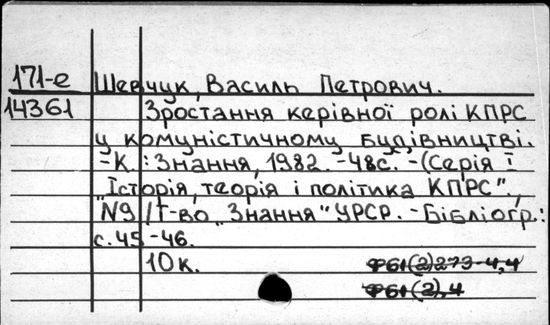 171-е Шевчук, Василь Петрович.
14361 Зростання керівної ролі КПРС
у комуністичному будівництві.
-К.: Знання, 1982. -48с. -(Серія І
"Історія, теорія і політика КПРС",
№9 / Т-во "Знання" УРСР. -Бібліогр.:
с.45-46.
10к. Ф61(2)273-4,4
Ф61(2),4